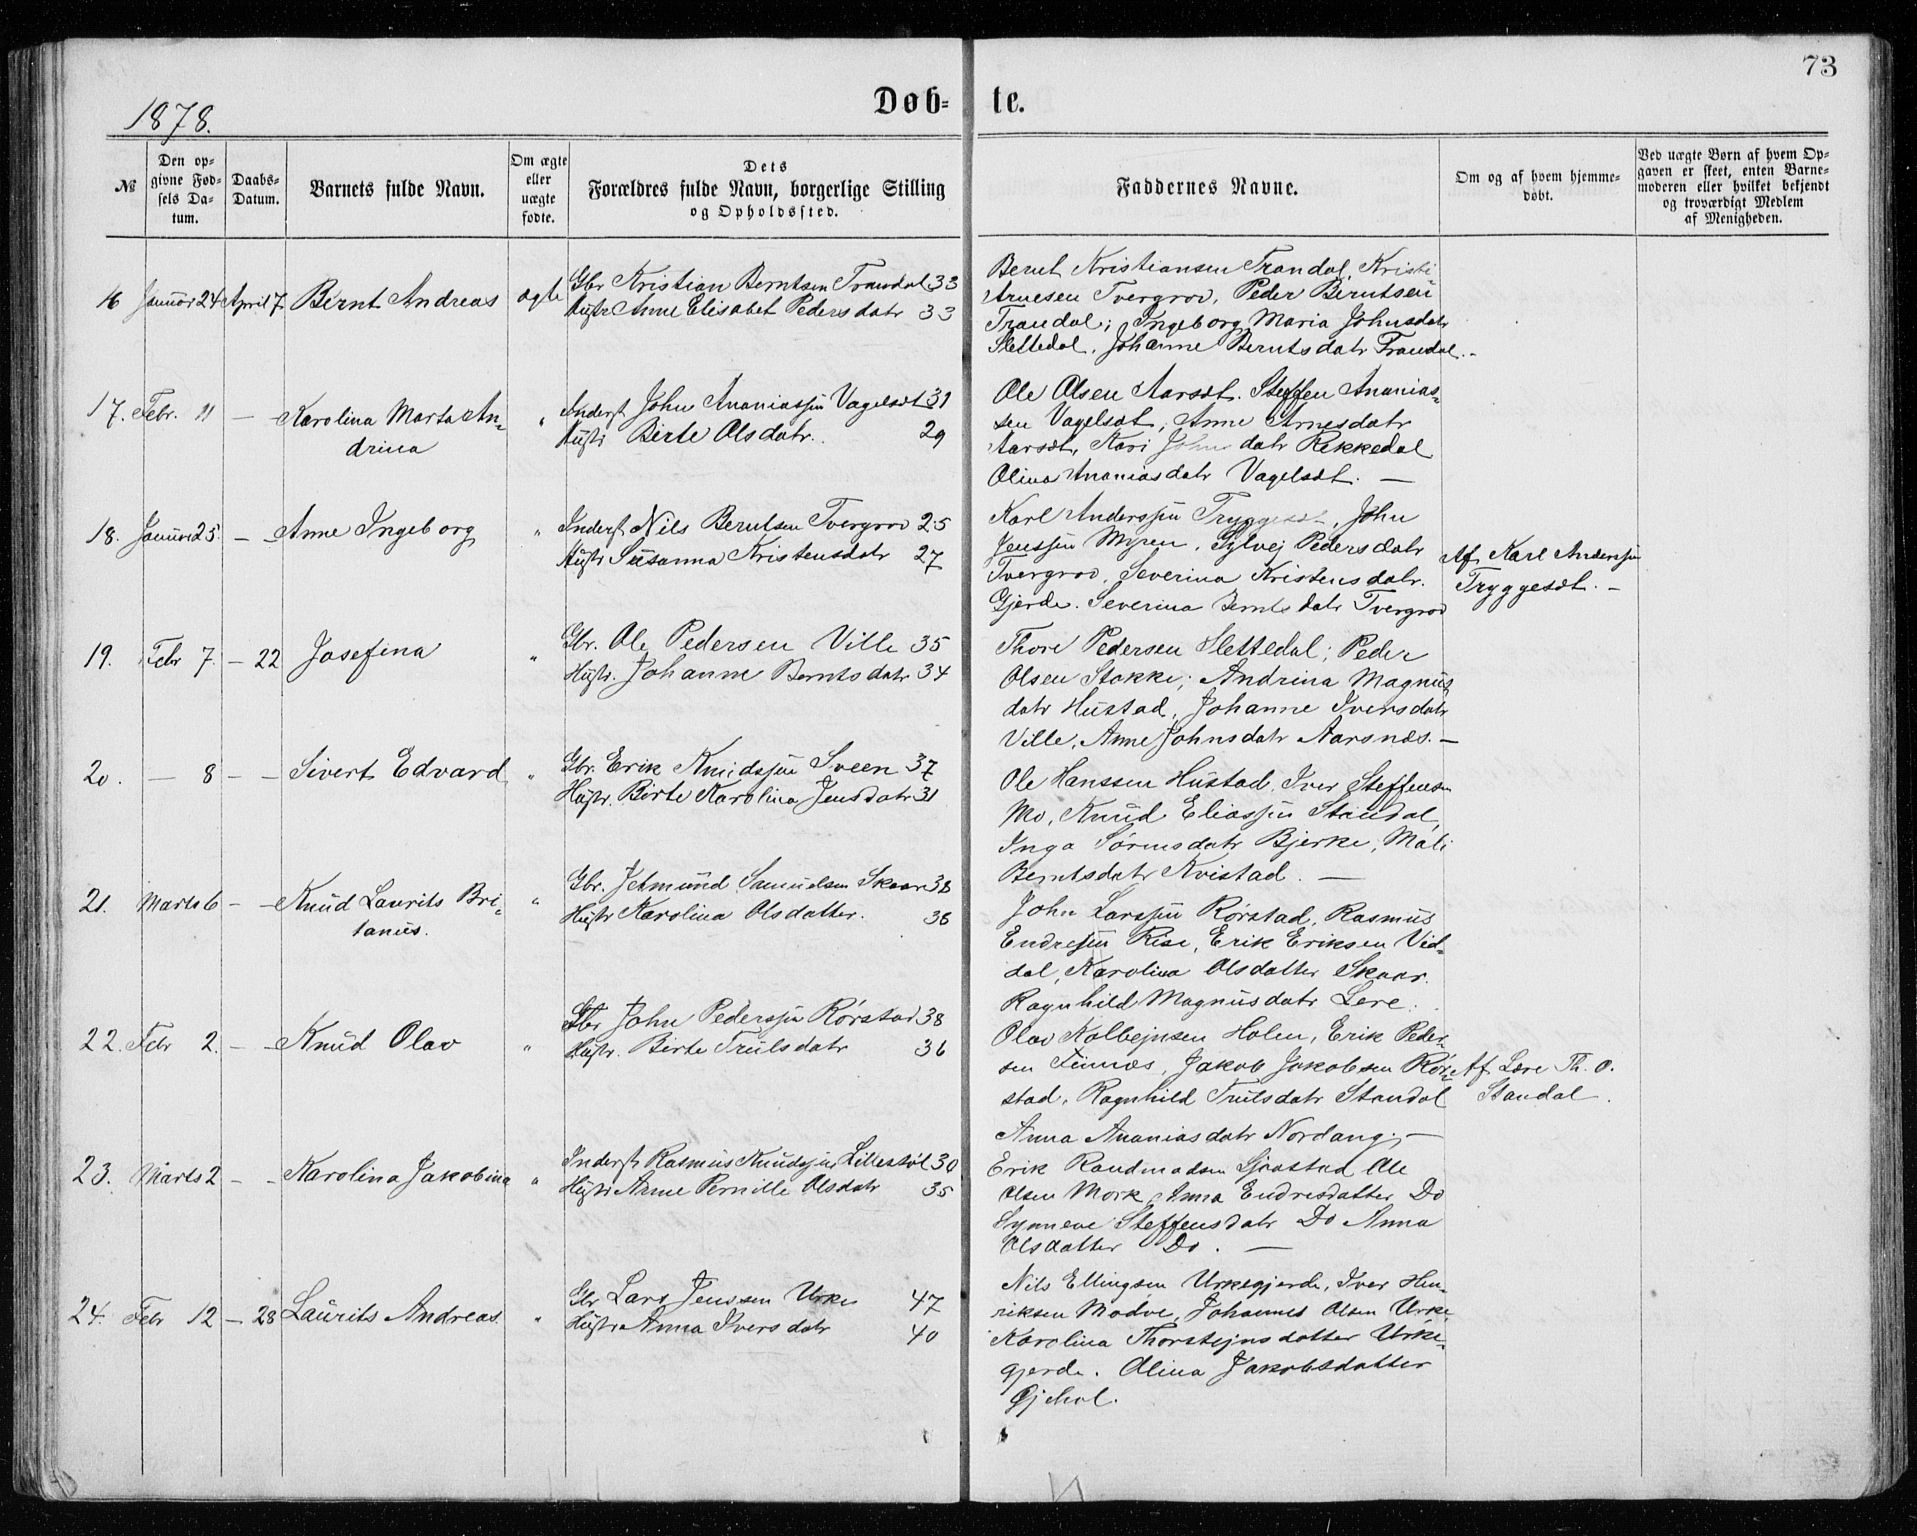 73
1878.
Døb-
te.
№
Den op-
givne Fød-
sels Da-
tum.
Daabs-
Datum.
Barnets fulde Navn.
Om ægte
eller
uægte
fødte.
Dets
Forældres fulde Navn, borgerlige Stilling
og Opholdssted.
Faddernes Navne.
Om og af hvem hjemme-
døbt.
Ved uægte Børn af hvem Op-
gaven er skeet, enten Barne-
moderen eller hvilket bekjendt
og troværdigt Medlem
af Menigheden.
16 Januar 24 April 7. Bernt Andreas ægte
Gbr Kristian Berntsen Trandal 33
Hustr Anne Elisabet Pedersdatr 33
Bernt Kristiansen Trandal, Kristi
Arnesen Tvergrov, Peder Berntsen
Trandal; Ingeborg Maria Johnsdatr
Slettedal, Johanne Berntsdatr Trandal.-
17. Febr. 11 — Karolina Marta An-
drina "
Inderst John Ananiassen Vagelsæt 31
Hustr Birte Olsdatr. 29
Ole Olsen Aarsæt. Steffen Ananias-
sen Vagelsæt, Anne Arnesdatr
Aarsæt, Kari John datr Rekkedal
Olina Ananiasdatr Vagelsæt. —
18. Januar 25. — Anne Ingeborg "
Inderst Nils Berntsen Tvergrov 25
Hustr Susanna Kristensdatr 27
Karl Anderssen Tryggesæt, John
Jenssen Myren, Sylvej Pedersdatr
Tvergrov, Severina Kristensdatr.
Gjerde. Severina Berntsdatr Tvergrov
Af Karl Anderssen
Tryggesæt. -
19. Febr 7. — 22 Josefina "
Gbr. Ole Pedersen Ville 35
Hustr. Johanne Berntsdatr 34
Thore Pedersen Slettedal; Peder
Olsen Stokke; Andrina Magnus
datr Hustad, Johanne Iversdatr
Ville, Anne Johnsdatr Aarsnæs. —
20. — 8 — — Sivert Edvard "
Gbr. Erik Knudssen Sveen 37
Hustr. Birte Karolina Jensdatr 31
Ole Hanssen Hustad, Iver Steffensen
Mo, Knud Eliassen Standal,
Inga Sørensdatr Bjerke, Mali
Berntsdatr Kvistad. —
21. Marts 6 — — Knud Laurits Bri-
tanus. "
Gbr. Jetmund Samuelsen Skaar 38
Hustr Karolina Olsdatter. 38
John Larssen Rørstad, Rasmus
Endresen Rise, Erik Eriksen Vid-
dal, Karolina Olsdatter Skaar.
Ragnhild Magnusdatr Lere.
22. Febr 2. — — Knud Olav "
Gbr John Pederssen Rørstad 38
Hustr. Birte Trulsdatr 36
Olav Kolbejnsen Holen, Erik Peder-
sen Finnæs, Jakob Jakobsen Rør-
stad, Ragnhild Trulsdatr Standal
Anna Ananiasdatr Nordang. —
Af Lære Th. O.
Standal.
23. Marts 2 — — Karolina Jakobina "
Inderst Rasmus Knudssen Lillestøl 30
Hustr Anne Pernille Olsdatr 35
Erik Raudmodsen Sjøstad Ole
Olsen Mork, Anna Endresdatter Do
Synneve Steffensdatr Do Anna
Olsdatter Do. —
24. Febr 12 — 28 Laurits Andreas. "
Gbr Lars Jenssen Urke 47
Hustr Anna Iversdatr 40
Nils Ellingsen Urkegjerde, Iver Hen-
riksen Modve, Johannes Olsen Urke,
Karolina Thorstejnsdatter Urke-
gjerde. Olina Jakobsdatter